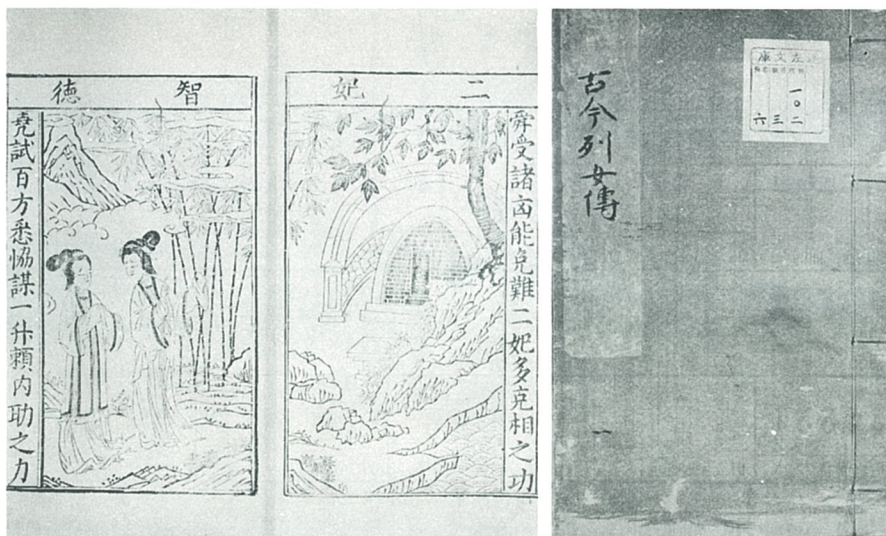 古今列女傳
一
蓬左文庫
一〇二
三
六
二妃
智德
舜受諸㐫能免難二妃多克相之功
堯試百方悉恊謀一升賴內助之力